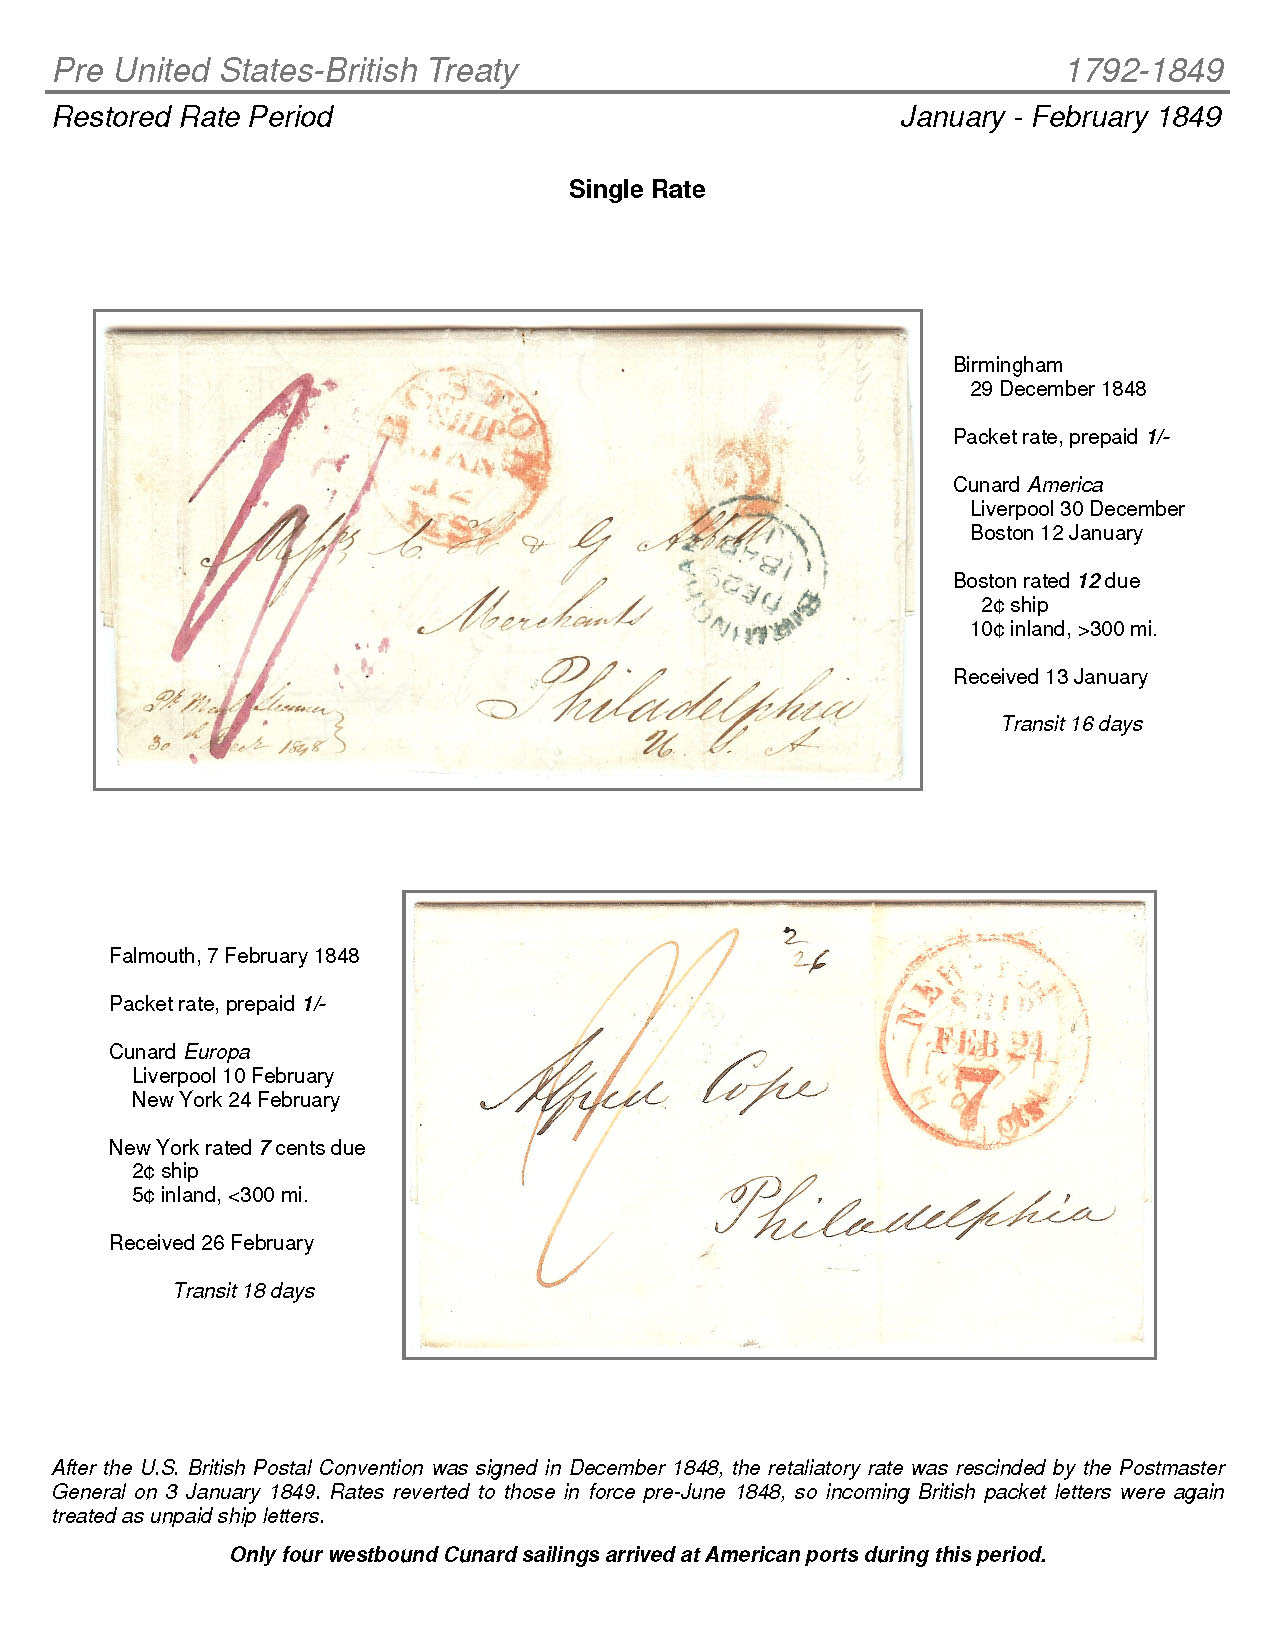 Pre United States-British Treaty 1792-1849
Restored Rate Period January - February 1849
Single Rate
BOSTON
SHIP
JAN
12
MS
BIRMINGHAM
DE 29
1848
Messrs C. H & G Abbott
Merchants
Philadelphia
U. S. A
Pr Mail Steamer
30th Decr 1848
Birmingham
29 December 1848
Packet rate, prepaid 1/-
Cunard America
Liverpool 30 December
Boston 12 January
Boston rated 12 due
2¢ ship
10¢ inland, >300 mi.
Received 13 January
Transit 16 days
Falmouth, 7 February 1848
Packet rate, prepaid 1/-
Cunard Europa
Liverpool 10 February
New York 24 February
New York rated 7 cents due
2¢ ship
5¢ inland, <300 mi.
Received 26 February
Transit 18 days
2
26
NEW-YORK
SHIP
FEB 24
7
cts
Alfred Cope
Philadelphia
After the U.S. British Postal Convention was signed in December 1848, the retaliatory rate was rescinded by the Postmaster
General on 3 January 1849. Rates reverted to those in force pre-June 1848, so incoming British packet letters were again
treated as unpaid ship letters.
Only four westbound Cunard sailings arrived at American ports during this period.